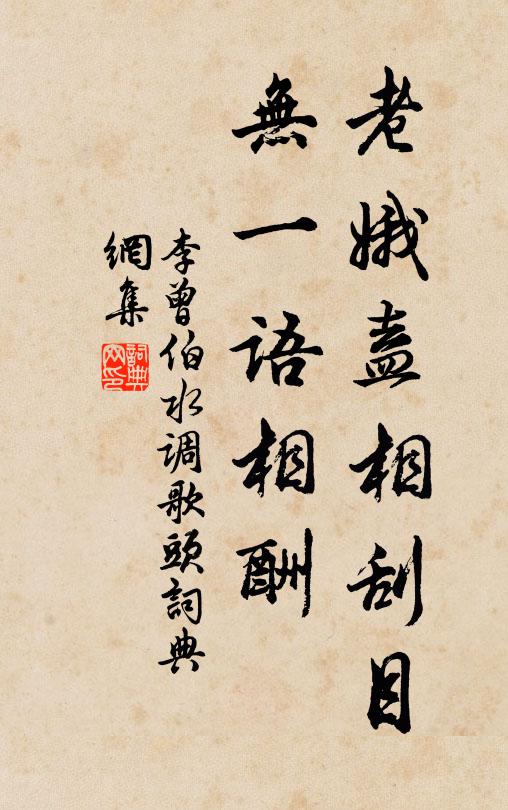 老娥盍相刮目
無一語相酬
李曾伯水调歌頭詞典
網集
詞典
网印